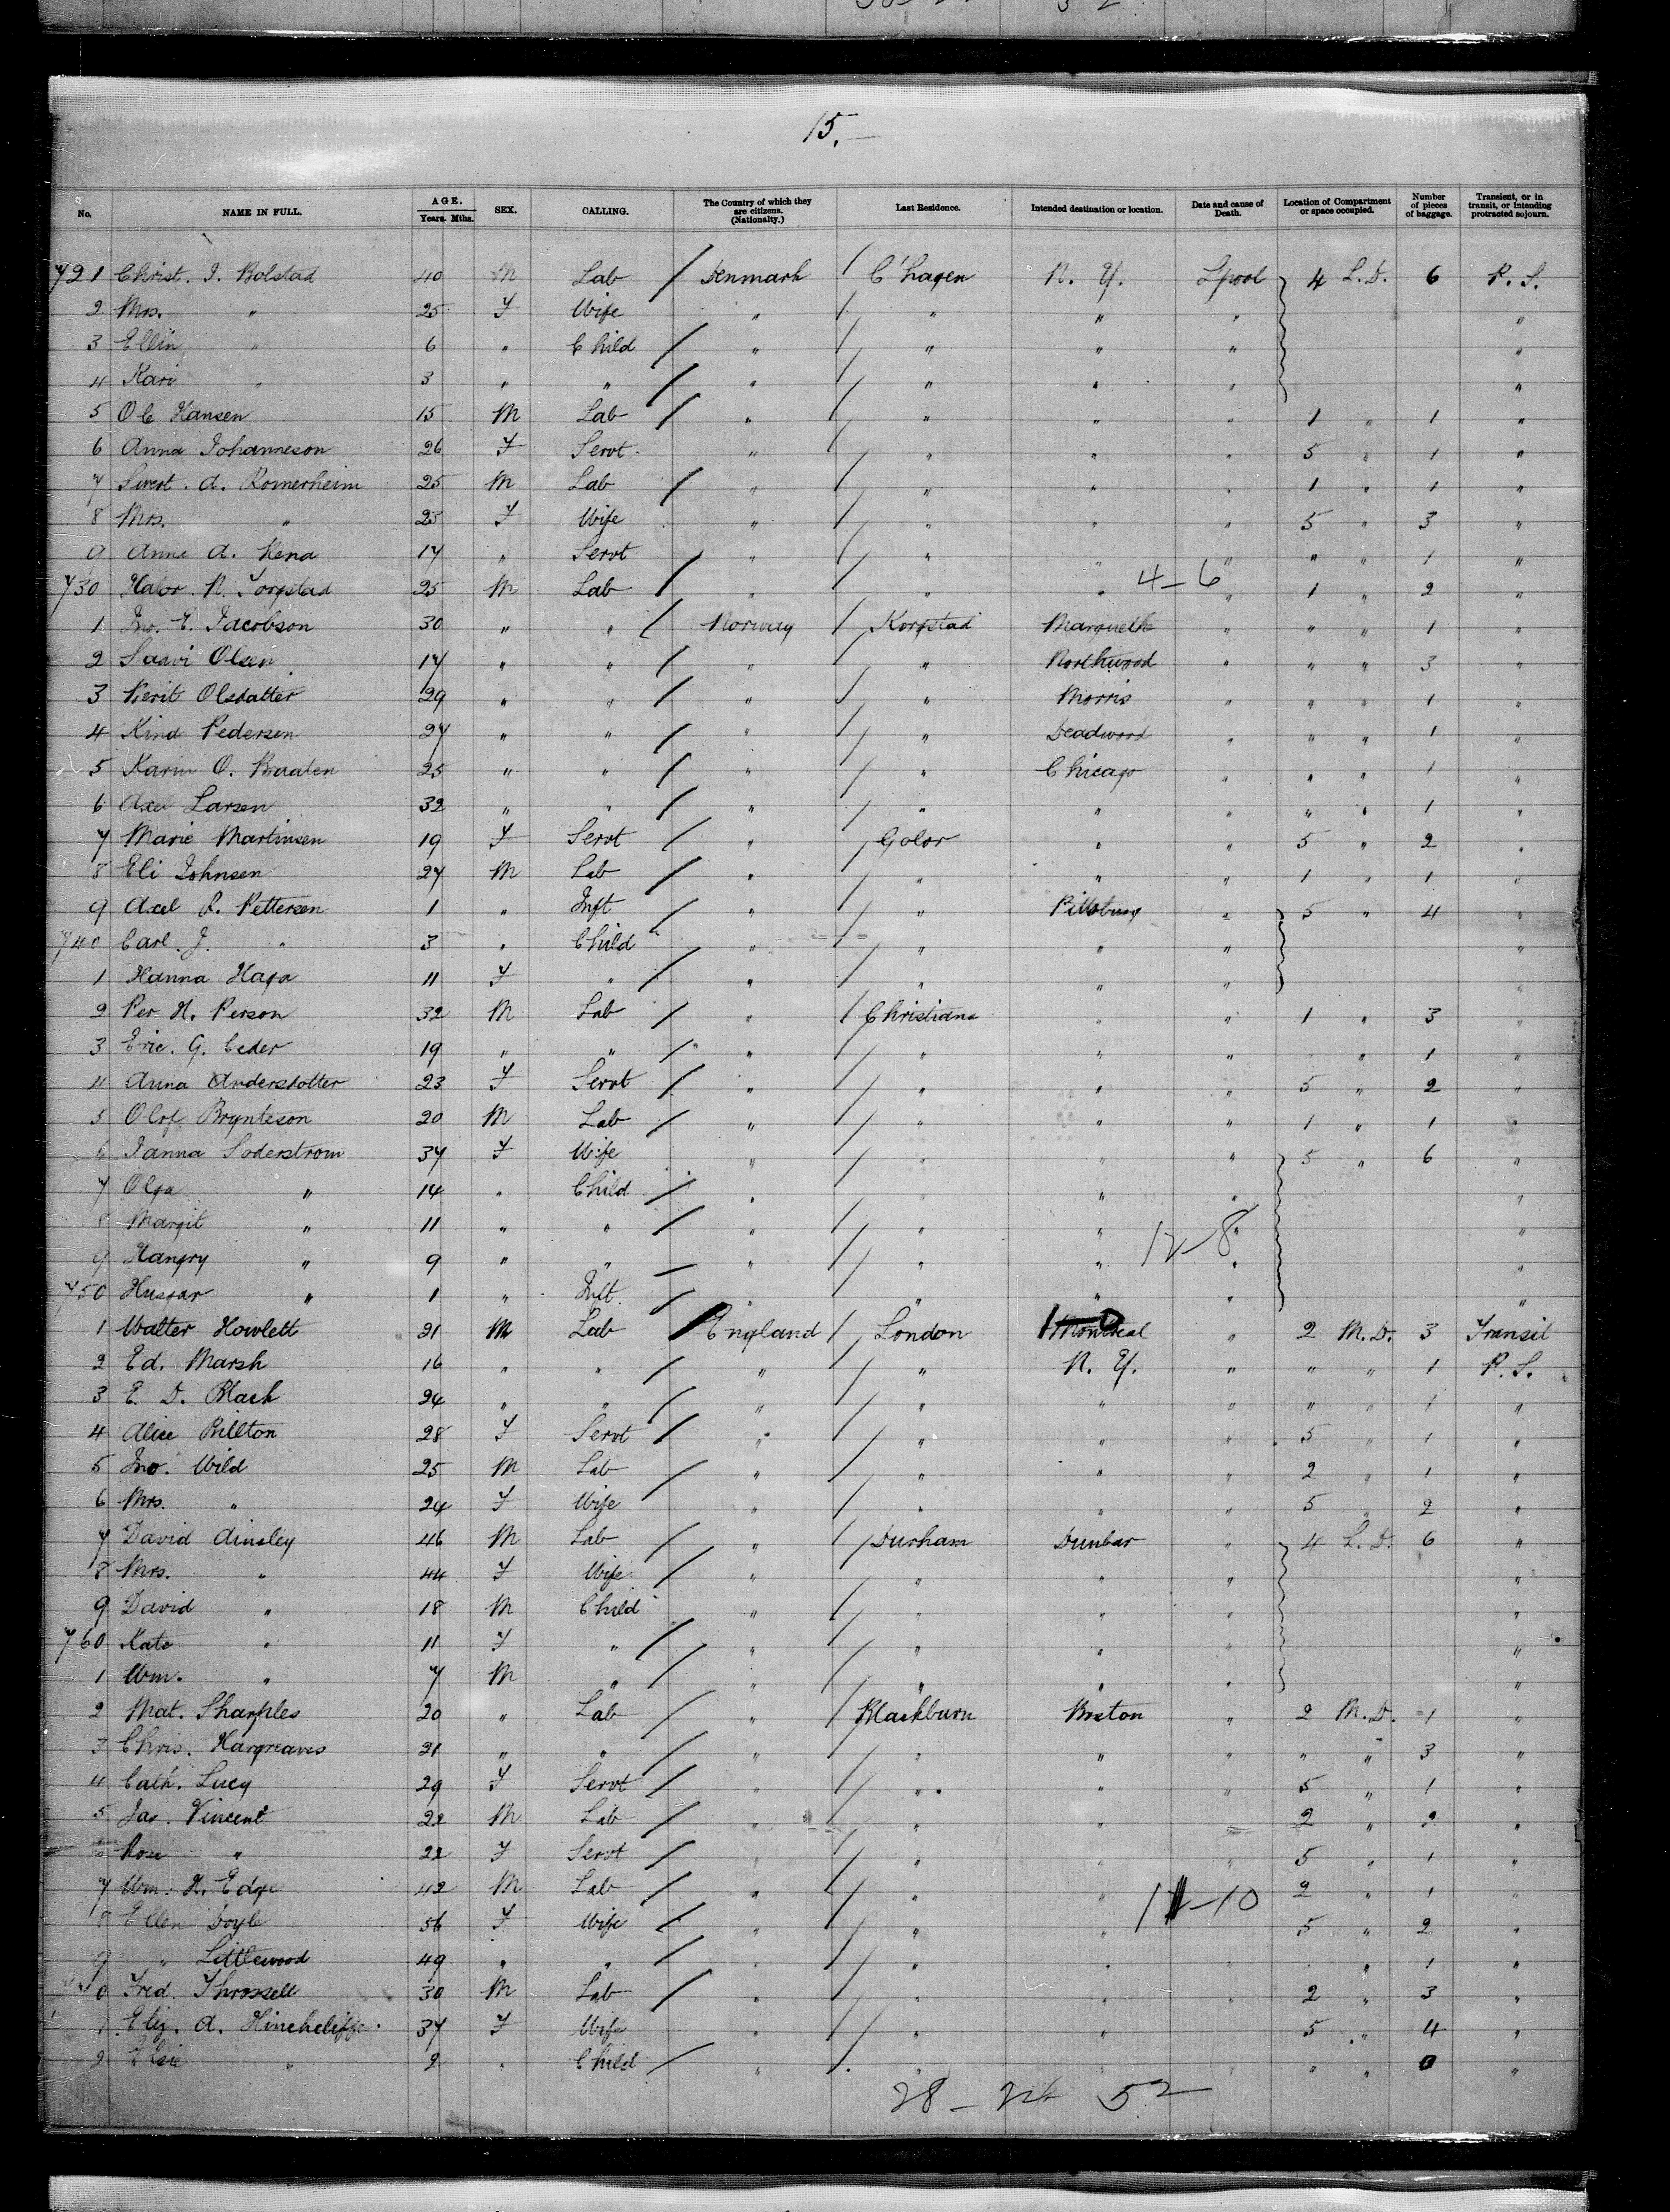 15.
No. NAME IN FULL. AGE. Years. Mths. SEX. CALLING. The Country of which they are citizens. (Nationalty.) Last Residence. Intended destination or location. Date and cause of Death. Location of Compartment or space occupied. Number of pieces of baggage. Transient, or in transit, or intending protracted sojourn.
721 Christ. I. Bolstad 40 M Lab / Denmark / C'hagen N. Y. Lpool 4 L.D. 6 P. S.
2 Mrs. " 25 F Wife " / " " " "
3 Ellin " 6 " Child / " / " " " "
4 Kari " 3 " " / " / " " " "
5 Ole Hansen 15 M Lab / " / " " " 1 " 1 "
6 Anna Johanneson 26 F Servt " / " " " 5 " 1 "
7 Sivert. A. Romerheim 25 M Lab / " / " " " 1 " 1 "
8 Mrs. " 23 F Wife " / " " " 5 " 3 "
9 Anna A. 17 " Servt / " / " " " " " 1 "
730 Halor. N. 25 M Lab / " / " " 4-6 " 1 " 2 "
1 Jno. E. Jacobson 30 " " / Norway / Korgstad " " " 1 "
2 Olsen 17 " " / " / " Northwood " " " 3 "
3 Berit Olsdatter 29 " " / " / " Morris " " " 1 "
4 Kind Pedersen 27 " " / " / " Deadwood " " " 1 "
5 O. Braaten 25 " " / " / " Chicago " " " 1 "
6 Axel Larsen 32 " " / " / " " " " " 1 "
7 Marie Martinsen 19 F Servt / " / Golor " " 5 " 2 "
8 Eli Johnsen 27 M Lab / " / " " " 1 " 1 "
9 Axel Pettersen 1 " Inft / " / " Pittsburg " 5 " 4 "
740 Carl. J. " 3 " Child " / " " " "
1 Hanna Haga 11 F " / " / " " " "
2 Per H. Person 32 M Lab / " / Christiana " " 1 " 3 "
3 Eric. G. Ceder 19 " " / " / " " " " 1 "
4 Anna Andersdotter 23 F Servt / " / " " " 5 " 2 "
5 Olof Brynteson 20 M Lab / " / " " " 1 " 1 "
6 Janna Soderstrom 37 F Wife " / " " " 5 " 6 "
7 Olga " 14 " Child / " / " " " "
8 Margit " 11 " " / " / " " " "
9 Hangry " 9 " " / " / " " 12-8 " "
750 Husgar " 1 " Inft. / " / " " " "
1 Walter Howlett 21 M Lab / England / London Montreal " 2 M.D. 3 Transit
2 Ed. Marsh 16 " " / " / " N. Y. " " " 1 P. S.
3 E. D. Black 24 " " / " / " " " " " 1 "
4 Alice Billton 28 F Servt / " / " " " 5 " 1 "
5 Jno. Wild 25 M Lab / " / " " " 2 " 1 "
6 Mrs. " 24 F Wife " / " " " 5 " 2 "
7 David Ainsley 46 M Lab / " / Durham Dunbar " 4 L.D. 6 "
8 Mrs. " 44 F Wife / " / " " " "
9 David " 18 M Child " / " " " "
760 Kate " 11 F " / " / " " " "
1 Wm. " 7 M " / " / " " " "
2 Mat. Sharples 20 " Lab / " / Blackburn Boston " 2 M.D. 1 "
3 Chris. Hargreaves 21 " " / " / " " " " " 3 "
4 Cath. Lucy 29 F Servt / " / " " " 5 " 1 "
5 Jas. Vincent 22 M Lab / " / " " " 2 " "
Rose " 22 F Servt / " / " " " 5 " 1 "
7 Wm. H. Edge 42 M Lab / " / " " 2 " 1 "
8 Ellen Doyle 56 F Wife / " / " " 5 " 2 "
9 " Littlewood 49 " " / " / " " " " 1 "
0 Fred. Throssell 30 M Lab / " / " " " 2 " 3 "
Eliz. A. Hinchcliffe 37 F Wife " / " " 5 " 4 "
2 Elsie " 2 " Child / " / " " " 0 "
28 - 24 52